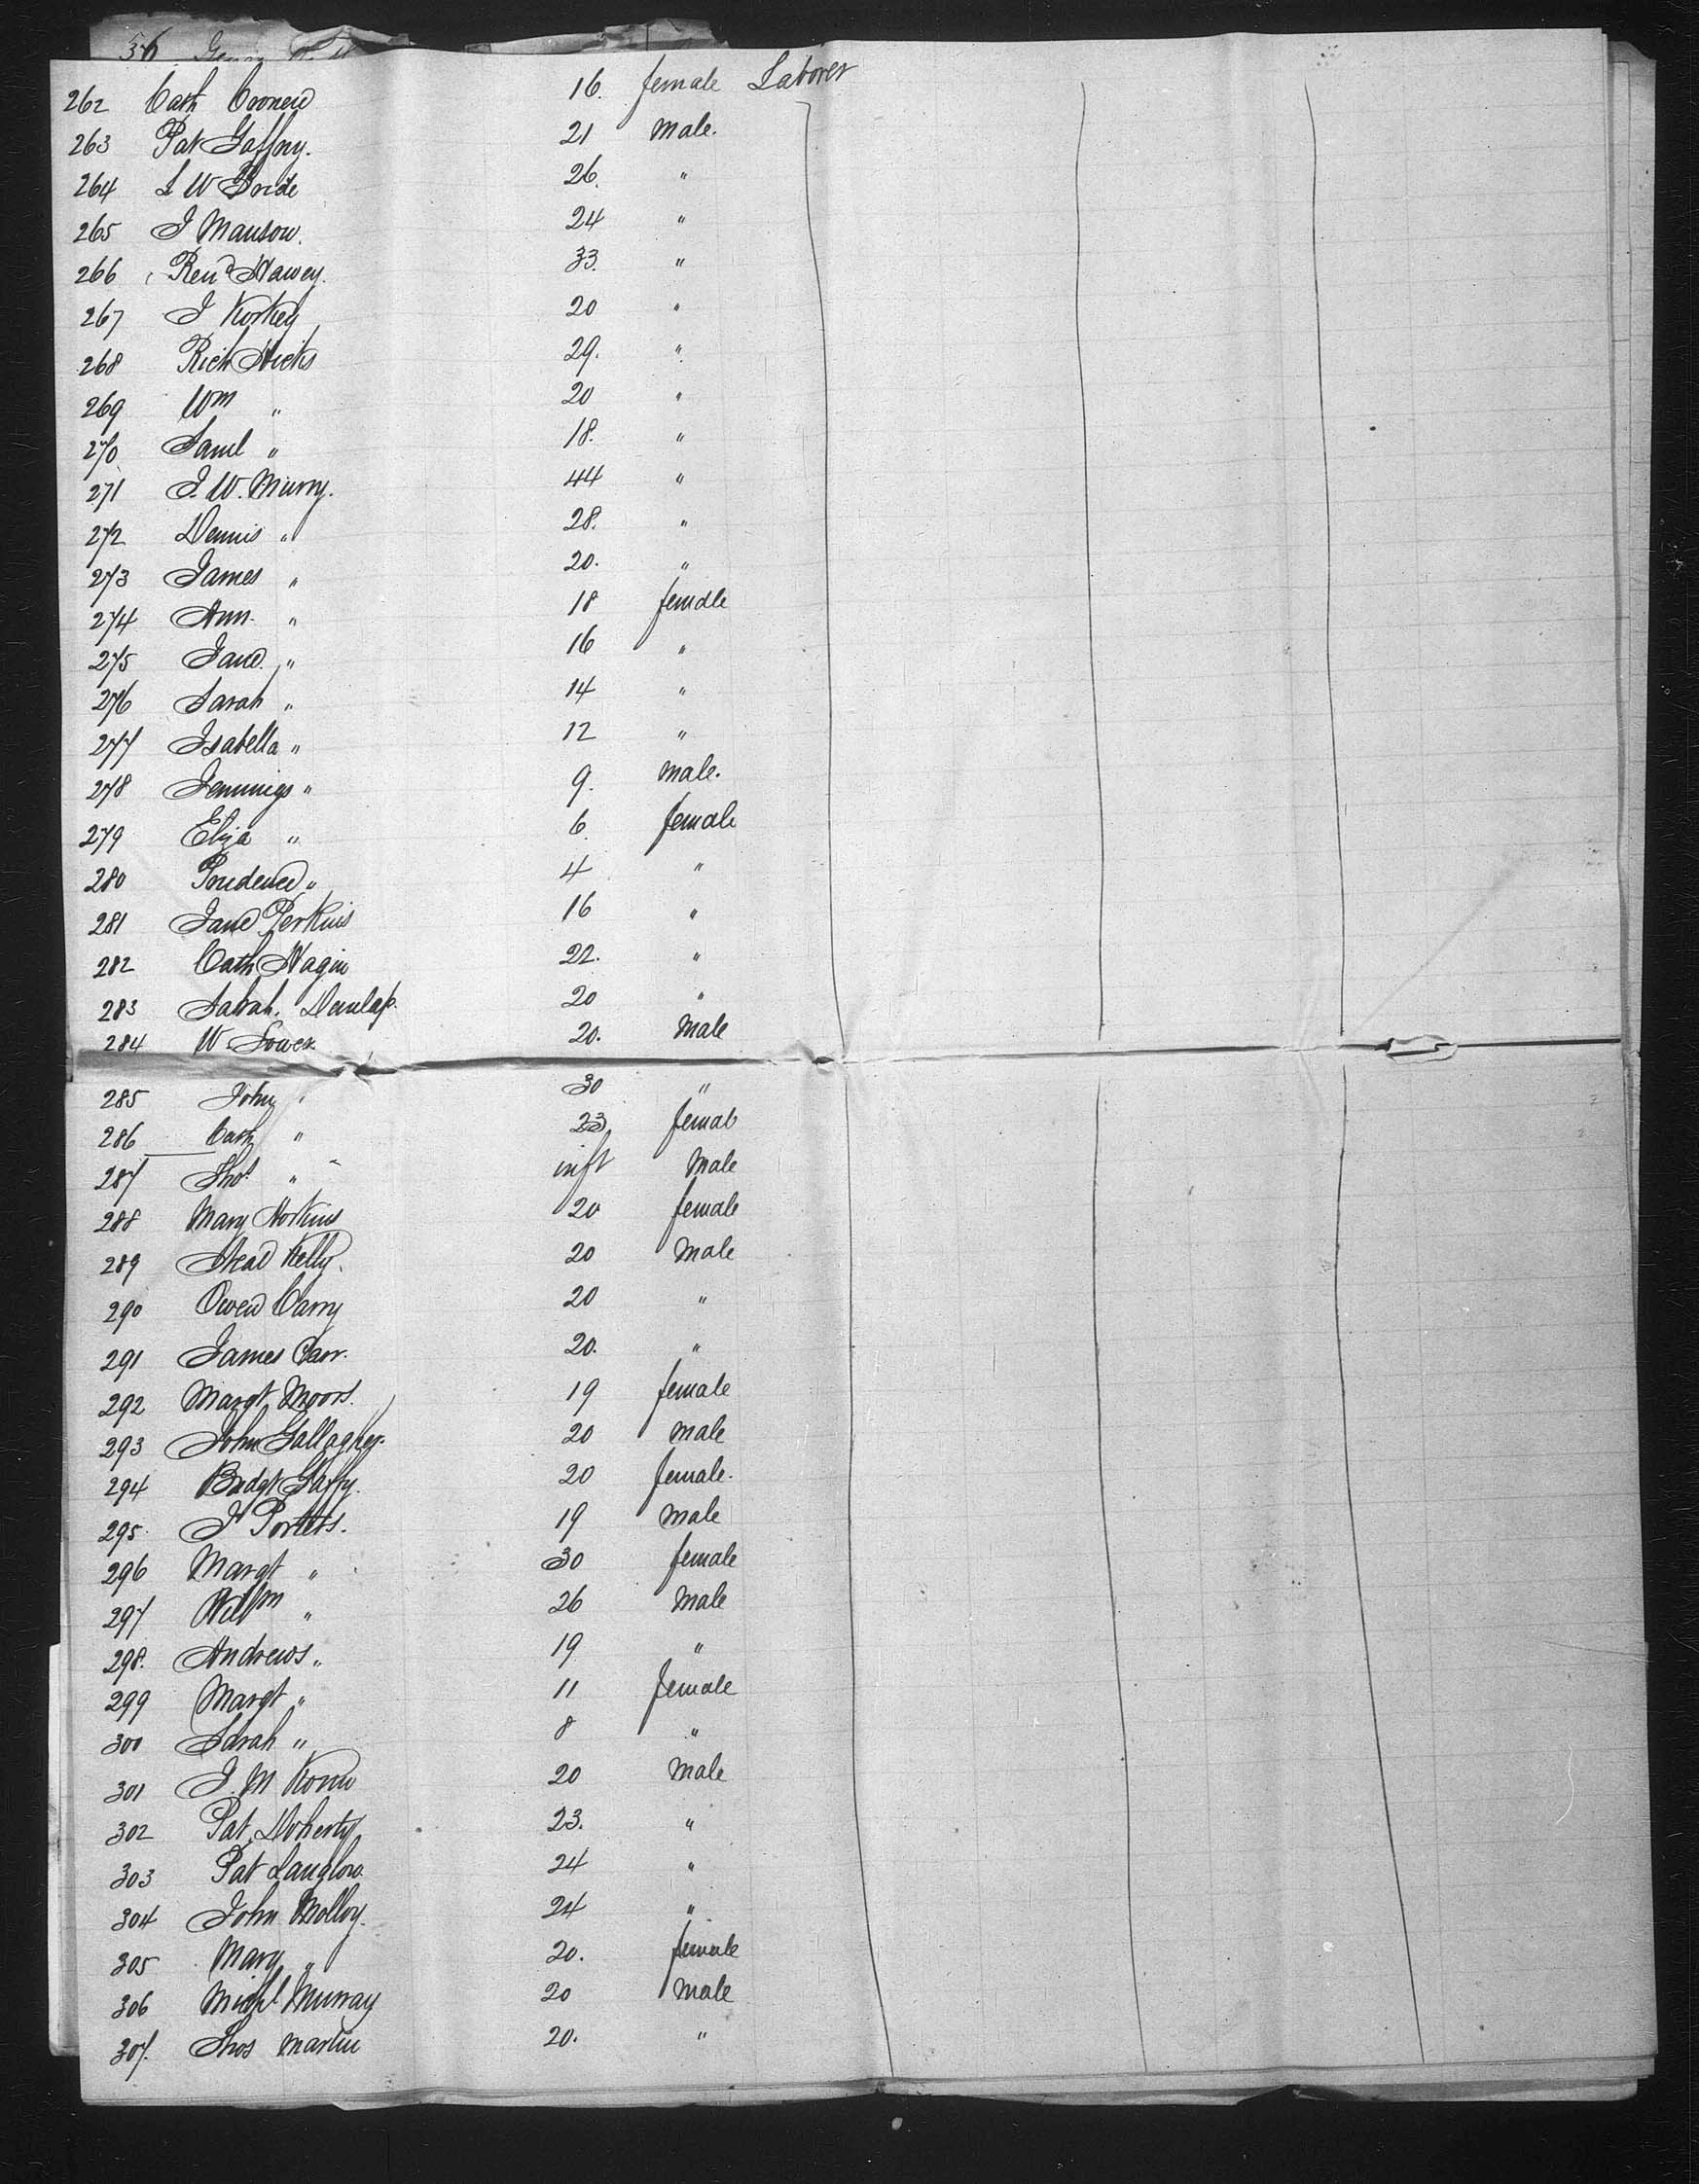 56
262 Cath Cronen 16. female Laborer
263 Pat Gaffny. 21 male.
264 S W Boide 26. "
265 J Manson. 24 "
266 Revd Hawey. 33. "
267 J Korkey 20 "
268 Rich Hicks 29. "
269 Wm " 20 "
270 Saml " 18. "
271 J. W. Murry. 44 "
272 Dennis " 28. "
273 James " 20. "
274 Ann. " 18 female
275 Jane " 16 "
276 Sarah " 14 "
277 Isabella " 12 "
278 Jennings " 9. male.
279 Eliza " 6. female
280 Prudence " 4 "
281 Jane Perkins 16 "
282 Cath Hagin 22. "
283 Sarah. Dunlap. 20 "
284 W Sower 20. male
285 John " 30 "
286 Cath " 23 female
287 Thos " inft Male
288 Mary Horkins 20 female
289 Neal Kelly. 20 Male
290 Owen Carry 20 "
291 James Carr. 20. "
292 Margt Moors. 19 female
293 John Gallagher. 20 male
294 Bridgt Gaffy. 20 female.
295. J Porters. 19 male
296 Margt " 30 female
297 Willm " 26 Male
298. Andrews " 19 "
299 Margt " 11 female
300 Sarah " 8 "
301 J. M 20 Male
302 Pat Doherty 23. "
303 Pat Langlow. 24 "
304 John Molloy. 24 "
305 Mary " 20. female
306 Michl Murray 20 Male
307. Thos Martin 20. "